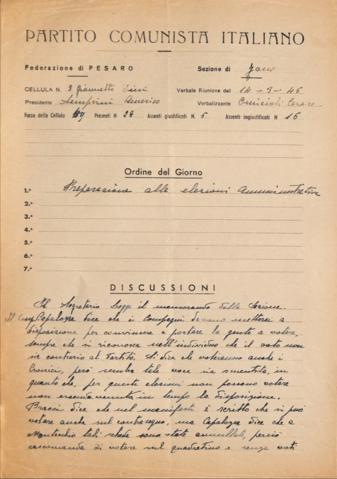 PARTITO COMUNISTA ITALIANO
Federazione di PESARO Sezione di Fano
CELLULA N. 3 Giannetto Dini Verbale Riunione del 14-3-46
Presidente Semprini Verbalizzante Omiccioli Cesare
Forza della Cellula Presenti N. 28 Assenti giustificati N. 5 Assenti ingiustificati N. 16
Ordine del Giorno
1.° Preparazione alle elezioni amministrative
2.°
3.°
4.°
5.°
6.°
7.°
DISCUSSIONI
Il Segretario legge il memorando della Sezione.
Il Comp Capalozza dice che i Compagni devono mettersi a
disposizione per convincere e portare la gente a votare,
sempre che si riconosce nell'individuo che il voto non
sia contrario al Partito. Si dice che voteranno anche i
Cronici, però sembra tale voce sia smentita, in
quanto che, per queste elezioni non possono votare
non essendo venuta in tempo la disposizione.
dice che nel manifesto è scritto che si può
votare anche sul contrassegno, ma Capalozza dice che a
Montecchio tali schede sono state annullate, perciò
raccomanda di votare sul quadretino e senza voti